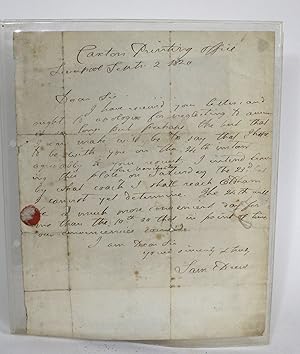 Caxton Printing Office
Liverpool Sept 2 1820
Dear Sir
I have received your letter, and
ought to apologize for neglecting to answer
it so long but perhaps the best that
I can make will be to say that I hope
to be with you on the 24th instant
agreeably to your request. I intend leav
ing this place on Saturday the 23rd but
by what coach I shall reach
I cannot yet determine. The 24th will
be a much more convenient day for
me than the 10th so that in point of time
our conveniences
I am Dear Sir
yours sincerely
Saml Drew